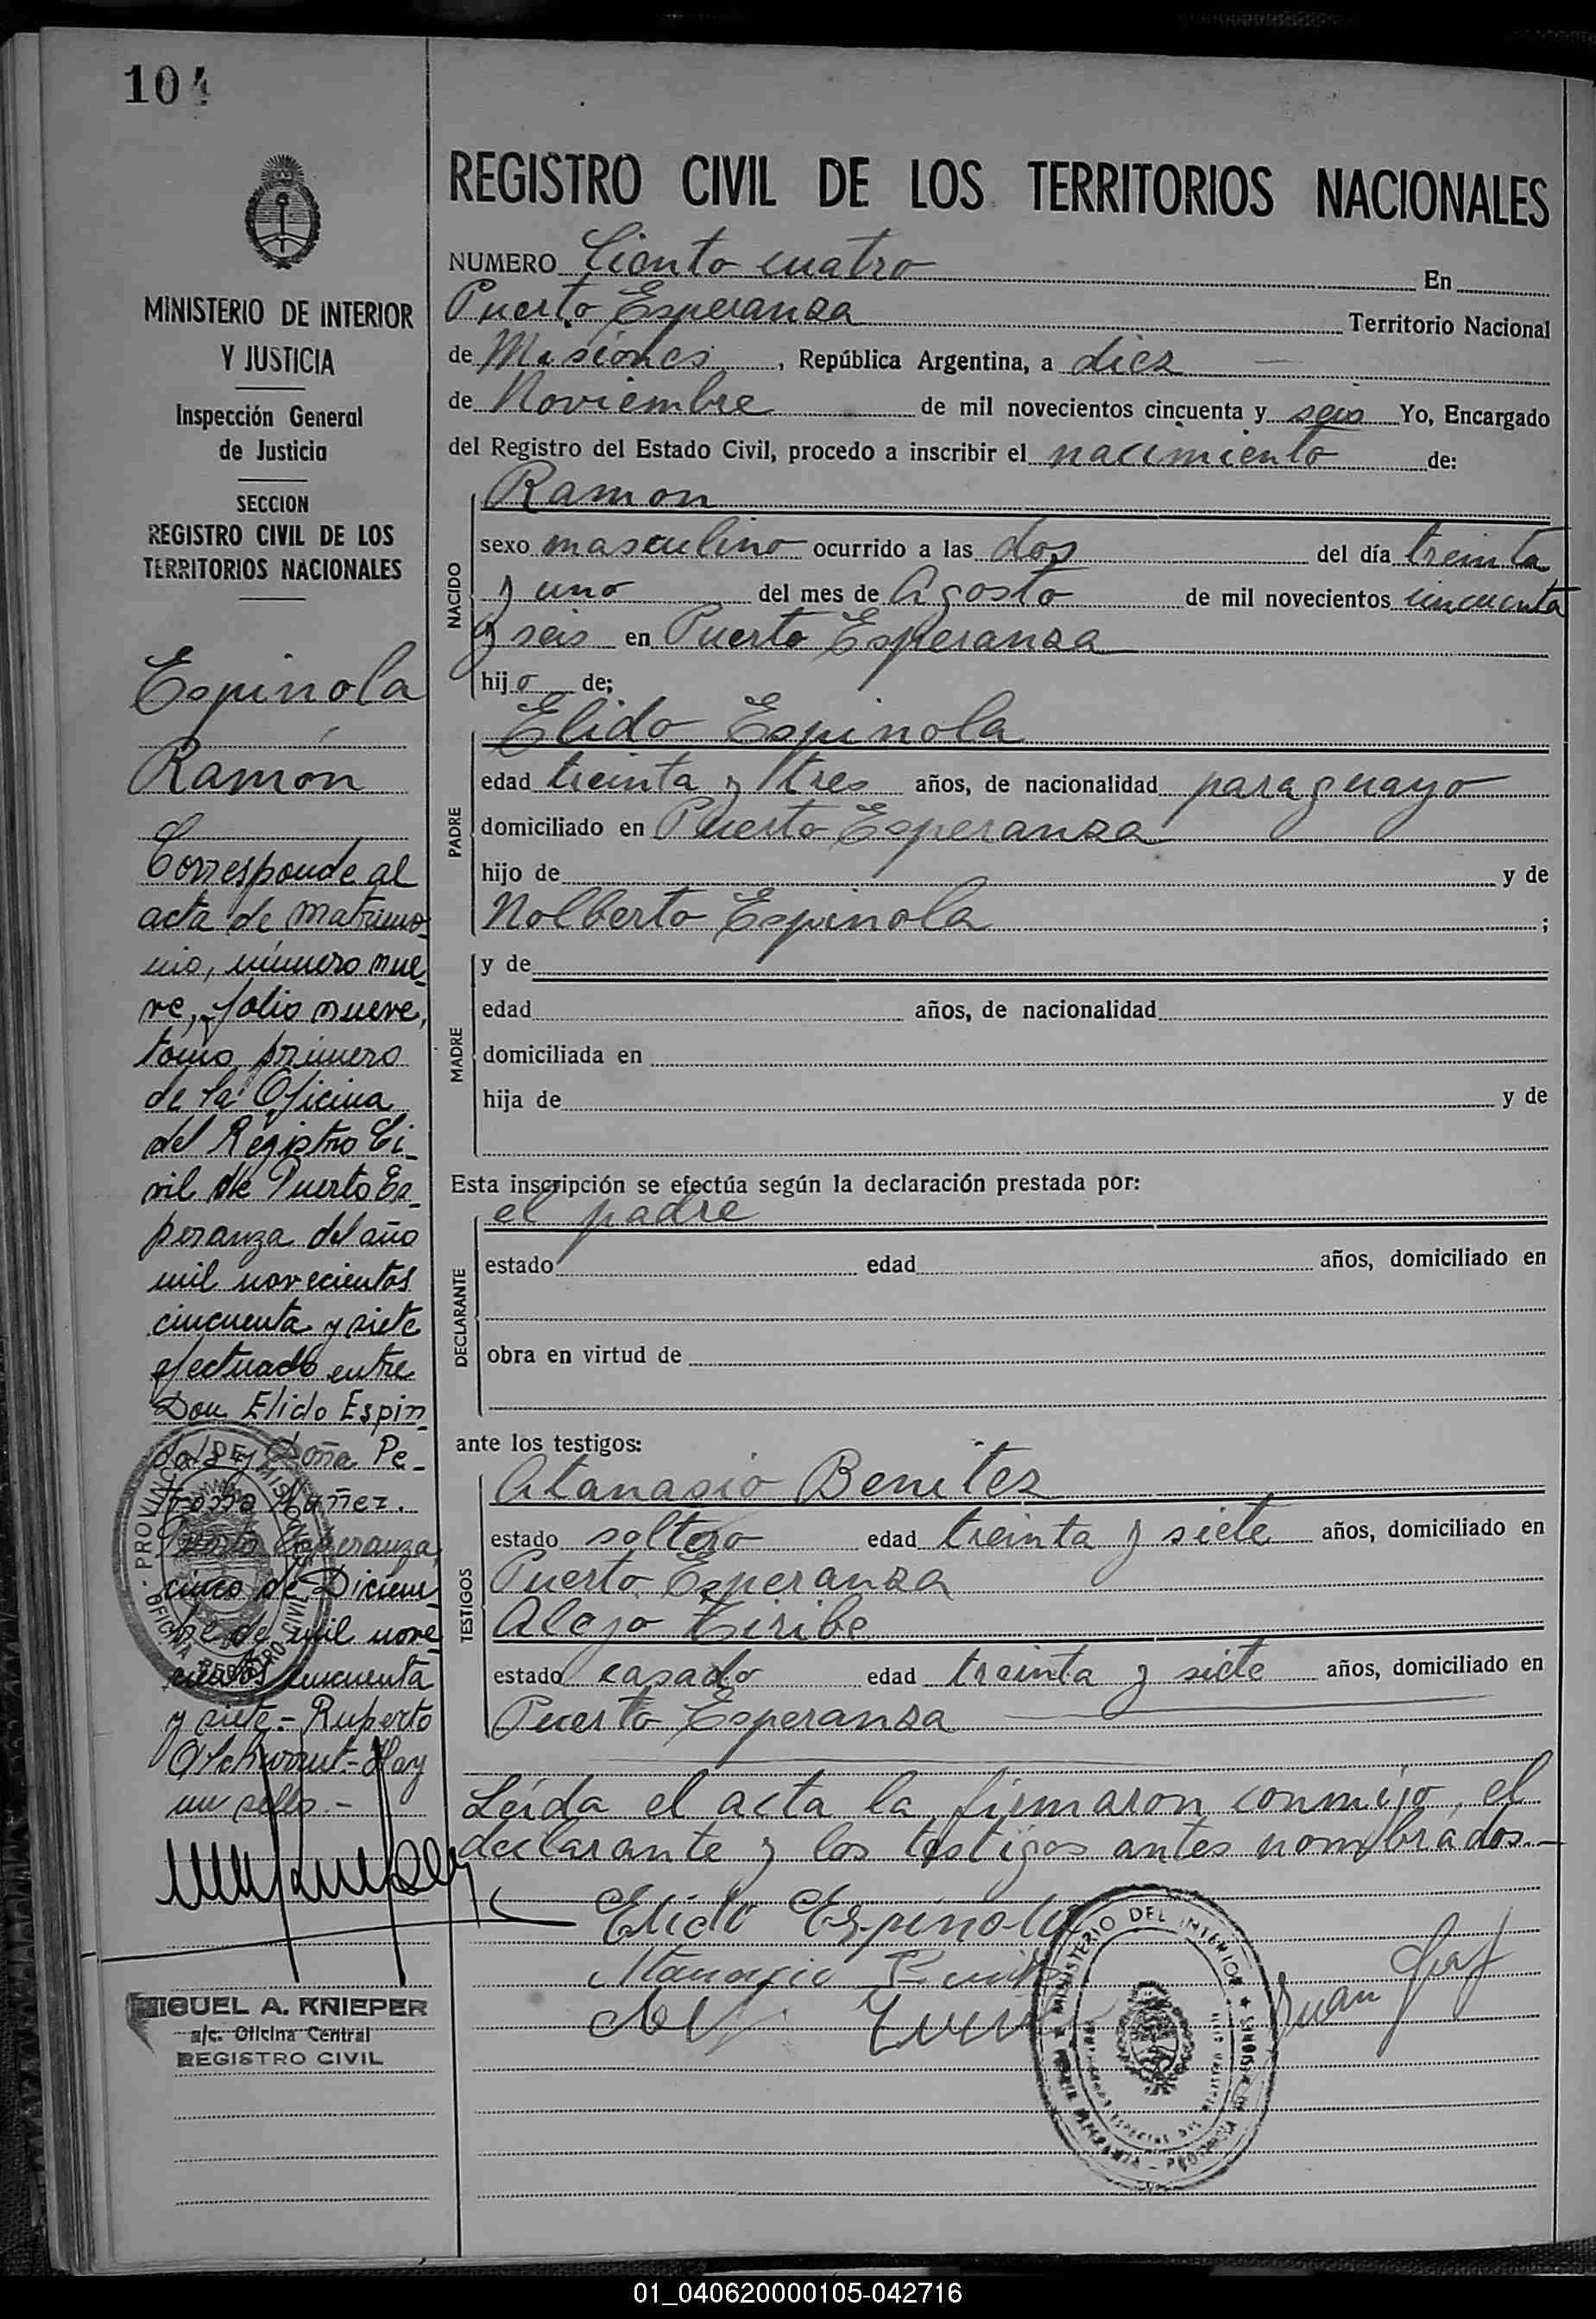 104
MINISTERIO DE INTERIOR
Y JUSTICIA
Inspección General
de Justicia
SECCION
REGISTRO CIVIL DE LOS
TERRITORIOS NACIONALES
Espinola
Ramón
Corresponde al
acta de matrimo-
nio, número nue-
ve, folio nueve,
tomo primero
de la Oficina
del Registro Ci-
vil de Puerto Es-
peranza del año
mil novecientos
cincuenta y siete
efectuado entre
Don Elido Espin-
dola y Doña Pe-
trona Nuñez.
Puerto Esperanza,
cinco de Diciem-
bre de mil nove-
cientos cincuenta
y siete.- Ruperto
Hay
un sello.-
MIGUEL A. KNIEPER
a/c. Oficina Central
REGISTRO CIVIL
REGISTRO CIVIL DE LOS TERRITORIOS NACIONALES
NUMERO Ciento cuatro En
Puerto Esperanza Territorio Nacional
de Misiones, República Argentina, a diez
de Noviembre de mil novecientos cincuenta y seis Yo, Encargado
del Registro del Estado Civil, procedo a inscribir el nacimiento de:
NACIDO
Ramon
sexo masculino ocurrido a las dos del día treinta
y uno del mes de Agosto de mil novecientos cincuenta
y seis en Puerto Esperanza
hijo de;
PADRE
Elido Espinola
edad treinta y tres años, de nacionalidad paraguayo
domiciliado en Puerto Esperanza
hijo de y de
Nolberto Espinola ;
MADRE
y de
edad años, de nacionalidad
domiciliada en
hija de y de
Esta inscripción se efectúa según la declaración prestada por:
DECLARANTE
el padre
estado edad años, domiciliado en
obra en virtud de
ante los testigos:
TESTIGOS
Atanasio Benitez
estado soltero edad treinta y siete años, domiciliado en
Puerto Esperanza
Alejo
estado casado edad treinta y siete años, domiciliado en
Puerto Esperanza
Leída el acta la firmaron conmigo, el
declarante y los testigos antes nombrados.-
Elido Espinola
MINISTERIO DEL INTERIOR
Juan
PROVINCIA DE MISIONES
01_040620000105-042716